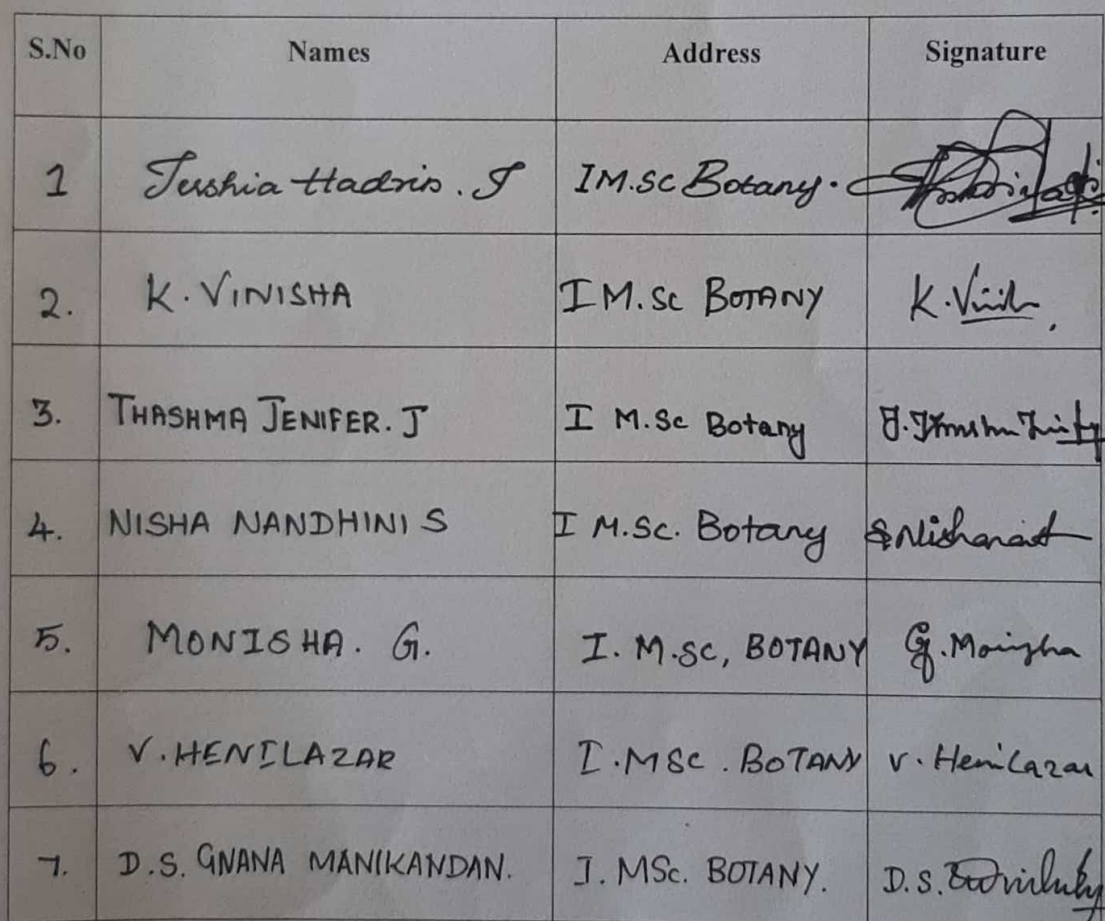 S.No Names Address Signature
1 Jershia Hadris . J IM.SC Botany.
2. K. VINISHA I M.Sc BOTANY K. Vinish
3. THASHMA JENIFER. J I M.Sc Botany J.
4. NISHA NANDHINI S I M.Sc. Botany
5. MONISHA. G. I. M.SC, BOTANY G. Monisha
6. V. HENILAZAR I. MSC . BOTANY V. Henilazar
7. D.S. GNANA MANIKANDAN. I. MSc. BOTANY. D.S.